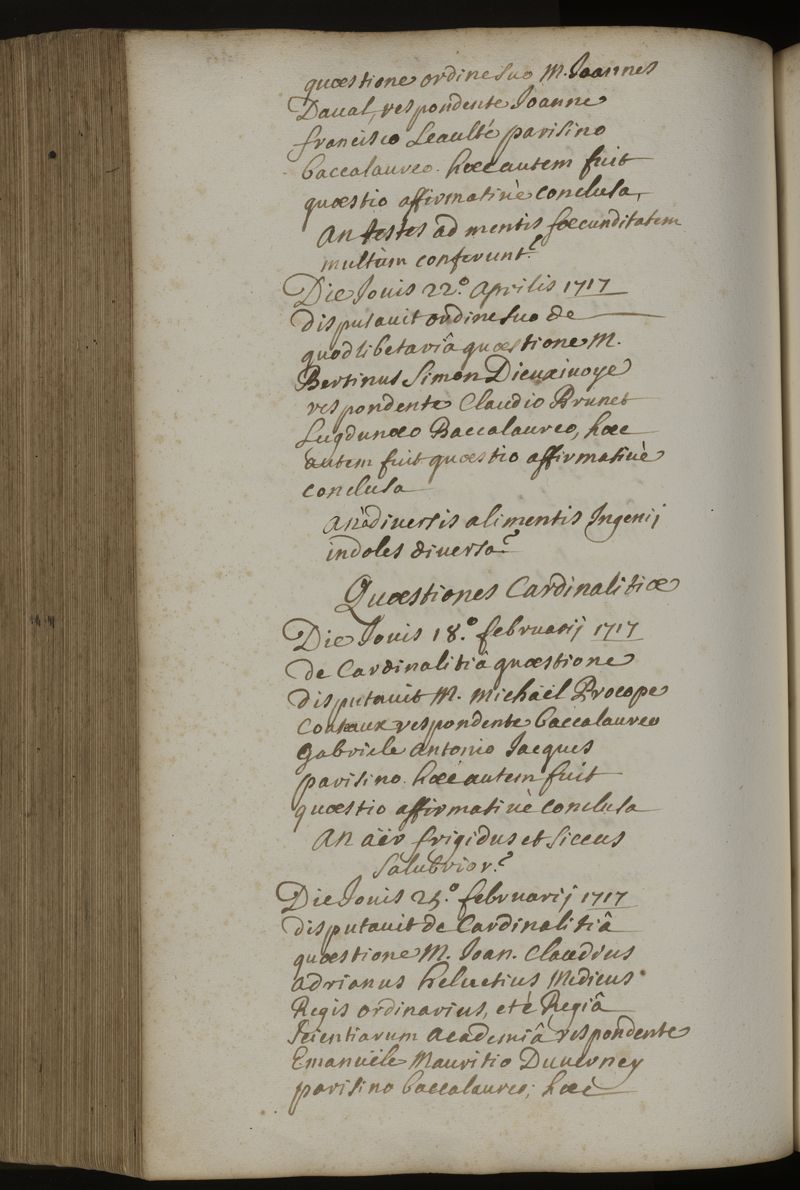 quæstione ordine suo M. Joannes
Daval, respondente Joanne
francisco Leaulté parisino
baccalaureo. hæc autem fuit
quæstio affirmativè conclusa,
An testes ad mentis fœcunditatem
multùm conferunt?
Die Jovis 22.º Aprilis 1717
disputavit ordine suo de
quodlibetariâ quæstione M.
Bertinus Simon Dieuxivoye
respondente Claudio Brunet
Lugdunæo Baccalaureo, hæc
autem fuit quæstio affirmativè
conclusa
An à diversis alimentis Ingenij
indoles diversa?
Quæstiones Cardinalitiæ
Die Jovis 18.º februarij 1717
de Cardinalitiâ quæstione
disputavit M. Michaël Procope
Couteaux respondente baccalaureo
Gabriele Antonio Jacques
parisino. hæc autem fuit
quæstio affirmativè conclusa
An aër frigidus et siccus
salubrior?
Die Jovis 25.º februarij 1717
disputavit de Cardinalitiâ
quæstione M. Joan. Claudius
Adrianus helvetius Medicus
Regis ordinarius, et è Regiâ
scientiarum Academiâ respondente
Emanuële Mauritio Duverney
parisino baccalaureo; hæc